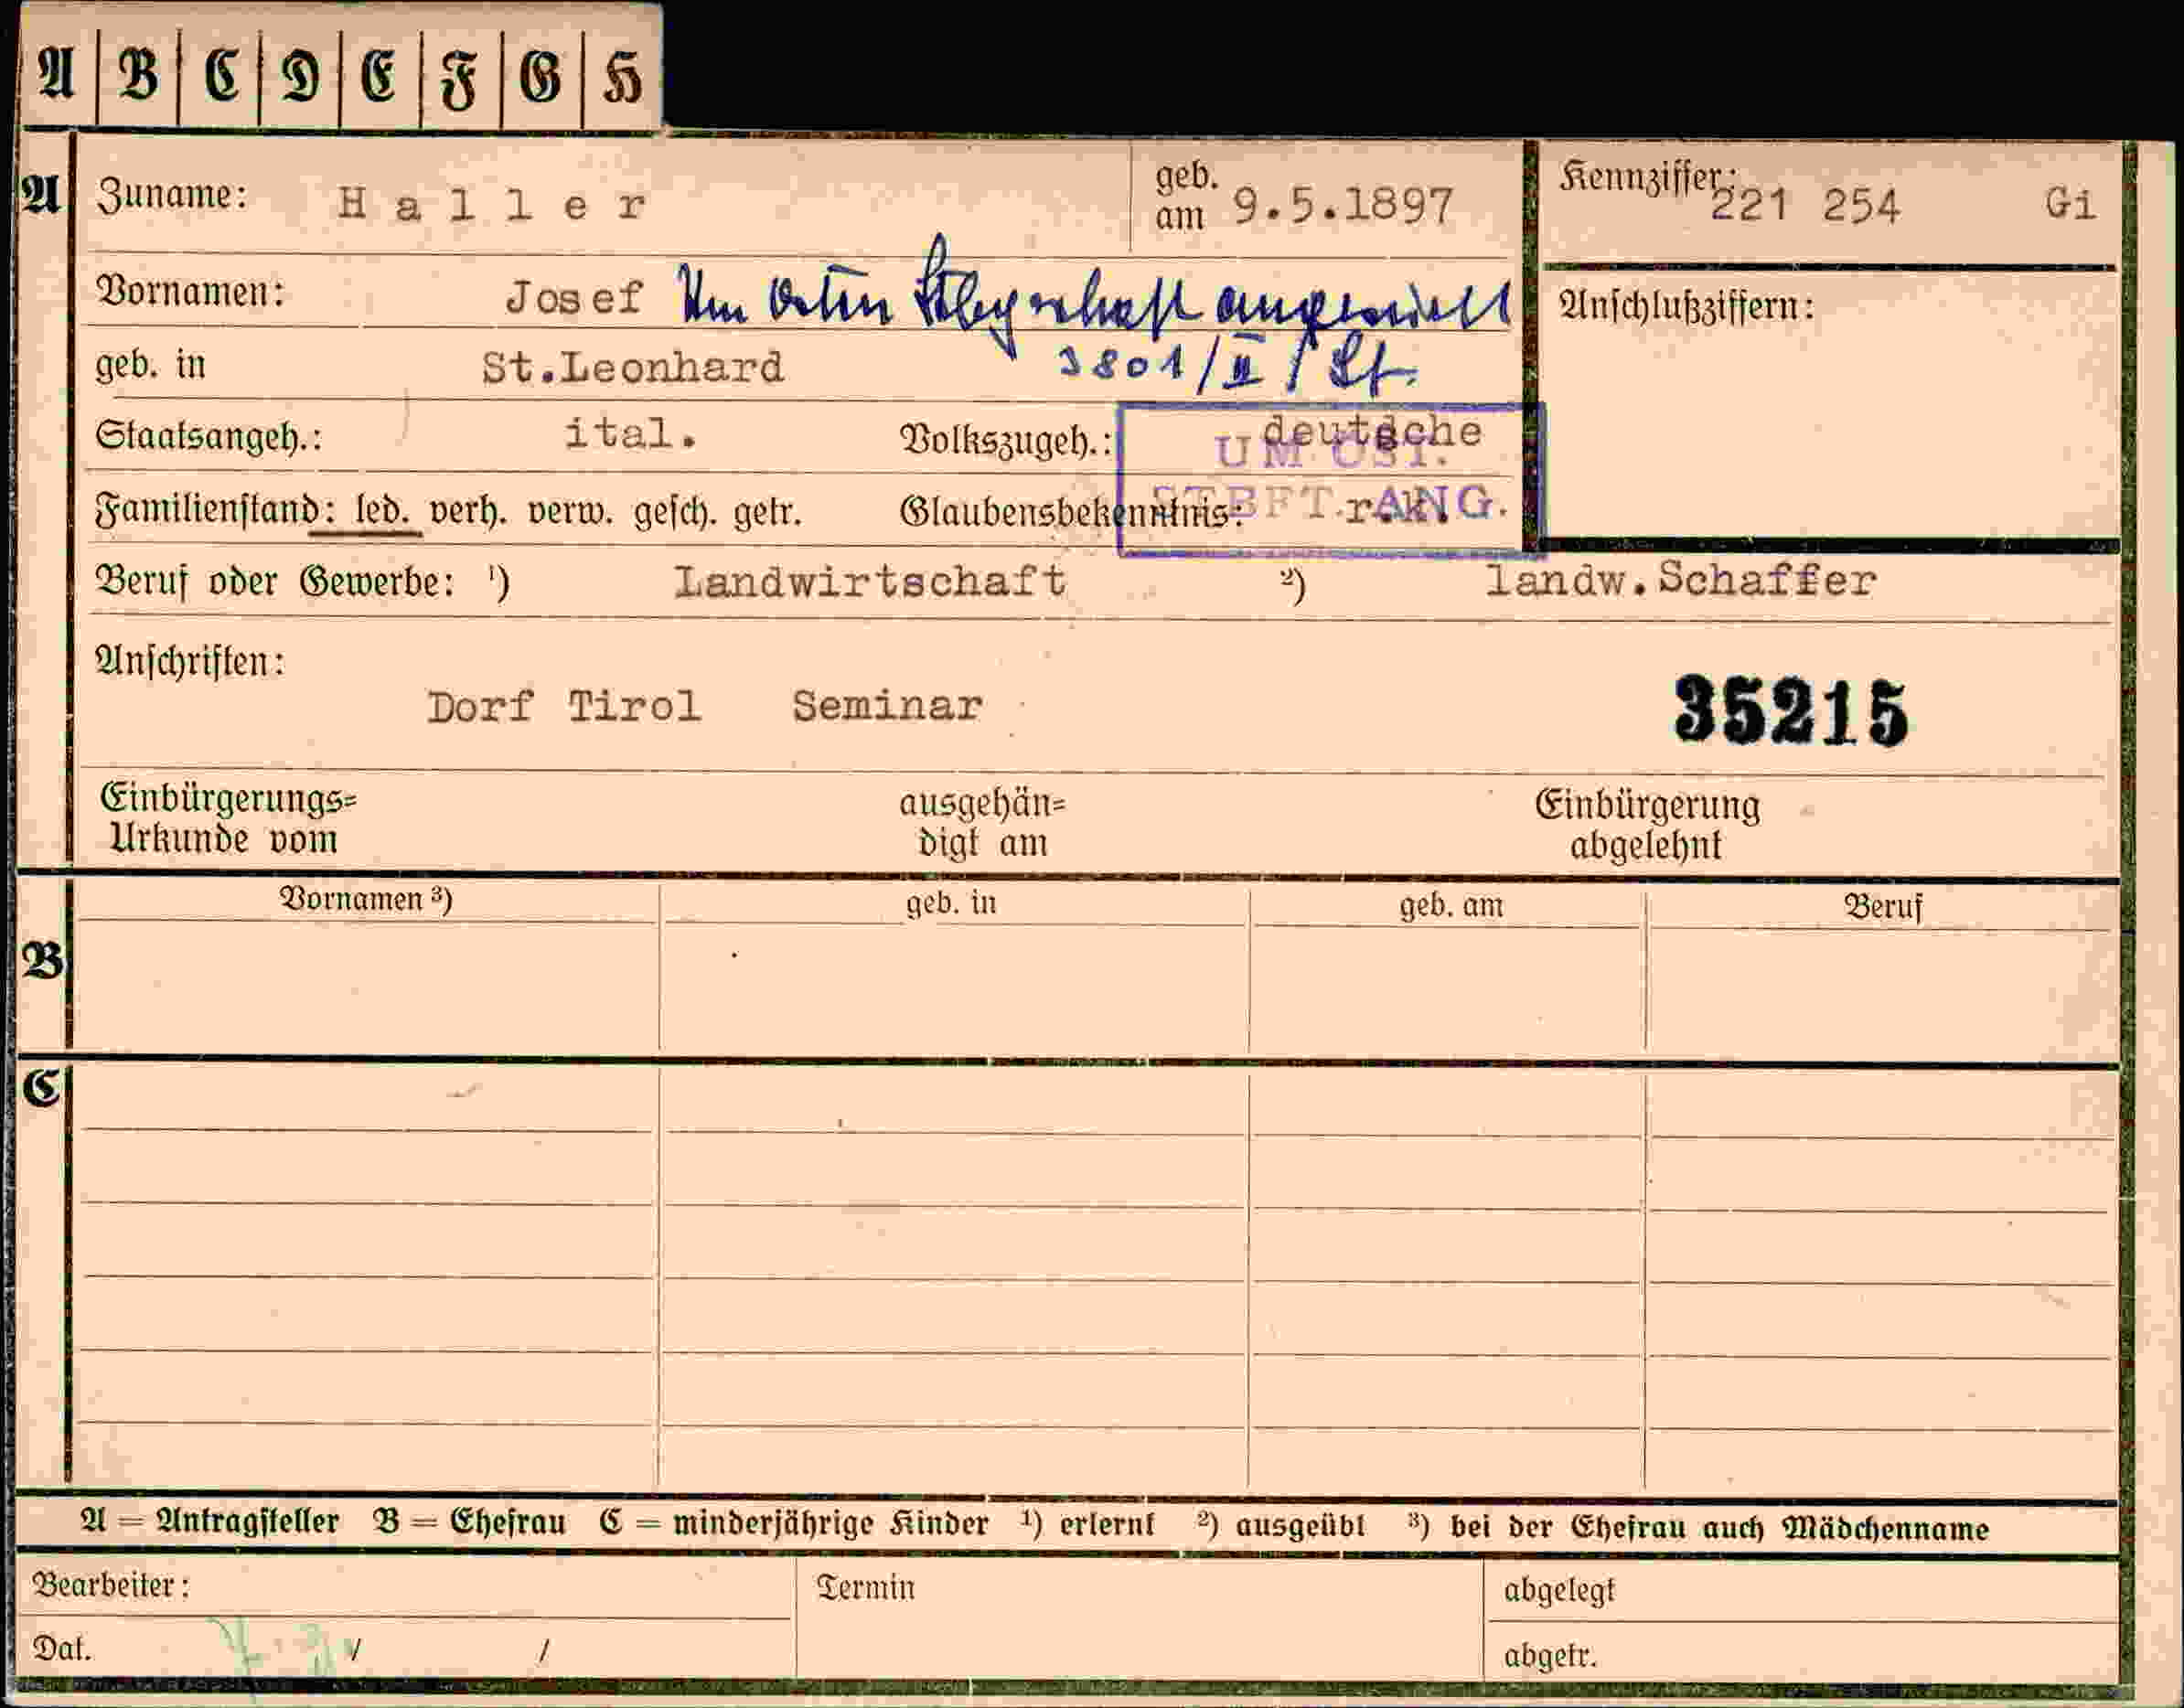 A B C D E F G H
A Zuname: Haller geb. am 9.5.1897 Kennziffer: 221 254 Gi
Vornamen: Josef Um Östrn Stbgschaft angemeldet Anschlußziffern:
geb. in St.Leonhard 3801/II/Lf.
Staatsangeh.: ital. Volkszugeh.: deutsche
UM ÖST.
Familienstand: led. verh. verw. gesch. getr. Glaubensbekenntnis: r.k.
STBFT. ANG.
Beruf oder Gewerbe: ¹) Landwirtschaft ²) landw.Schaffer
Anschriften:
Dorf Tirol Seminar 35215
Einbürgerungs= ausgehän= Einbürgerung
Urkunde vom digt am abgelehnt
Vornamen ³) geb. in geb. am Beruf
B
C
A = Antragsteller B = Ehefrau C = minderjährige Kinder ¹) erlernt ²) ausgeübt ³) bei der Ehefrau auch Mädchenname
Bearbeiter: Termin abgelegt
Dat. / / abgetr.